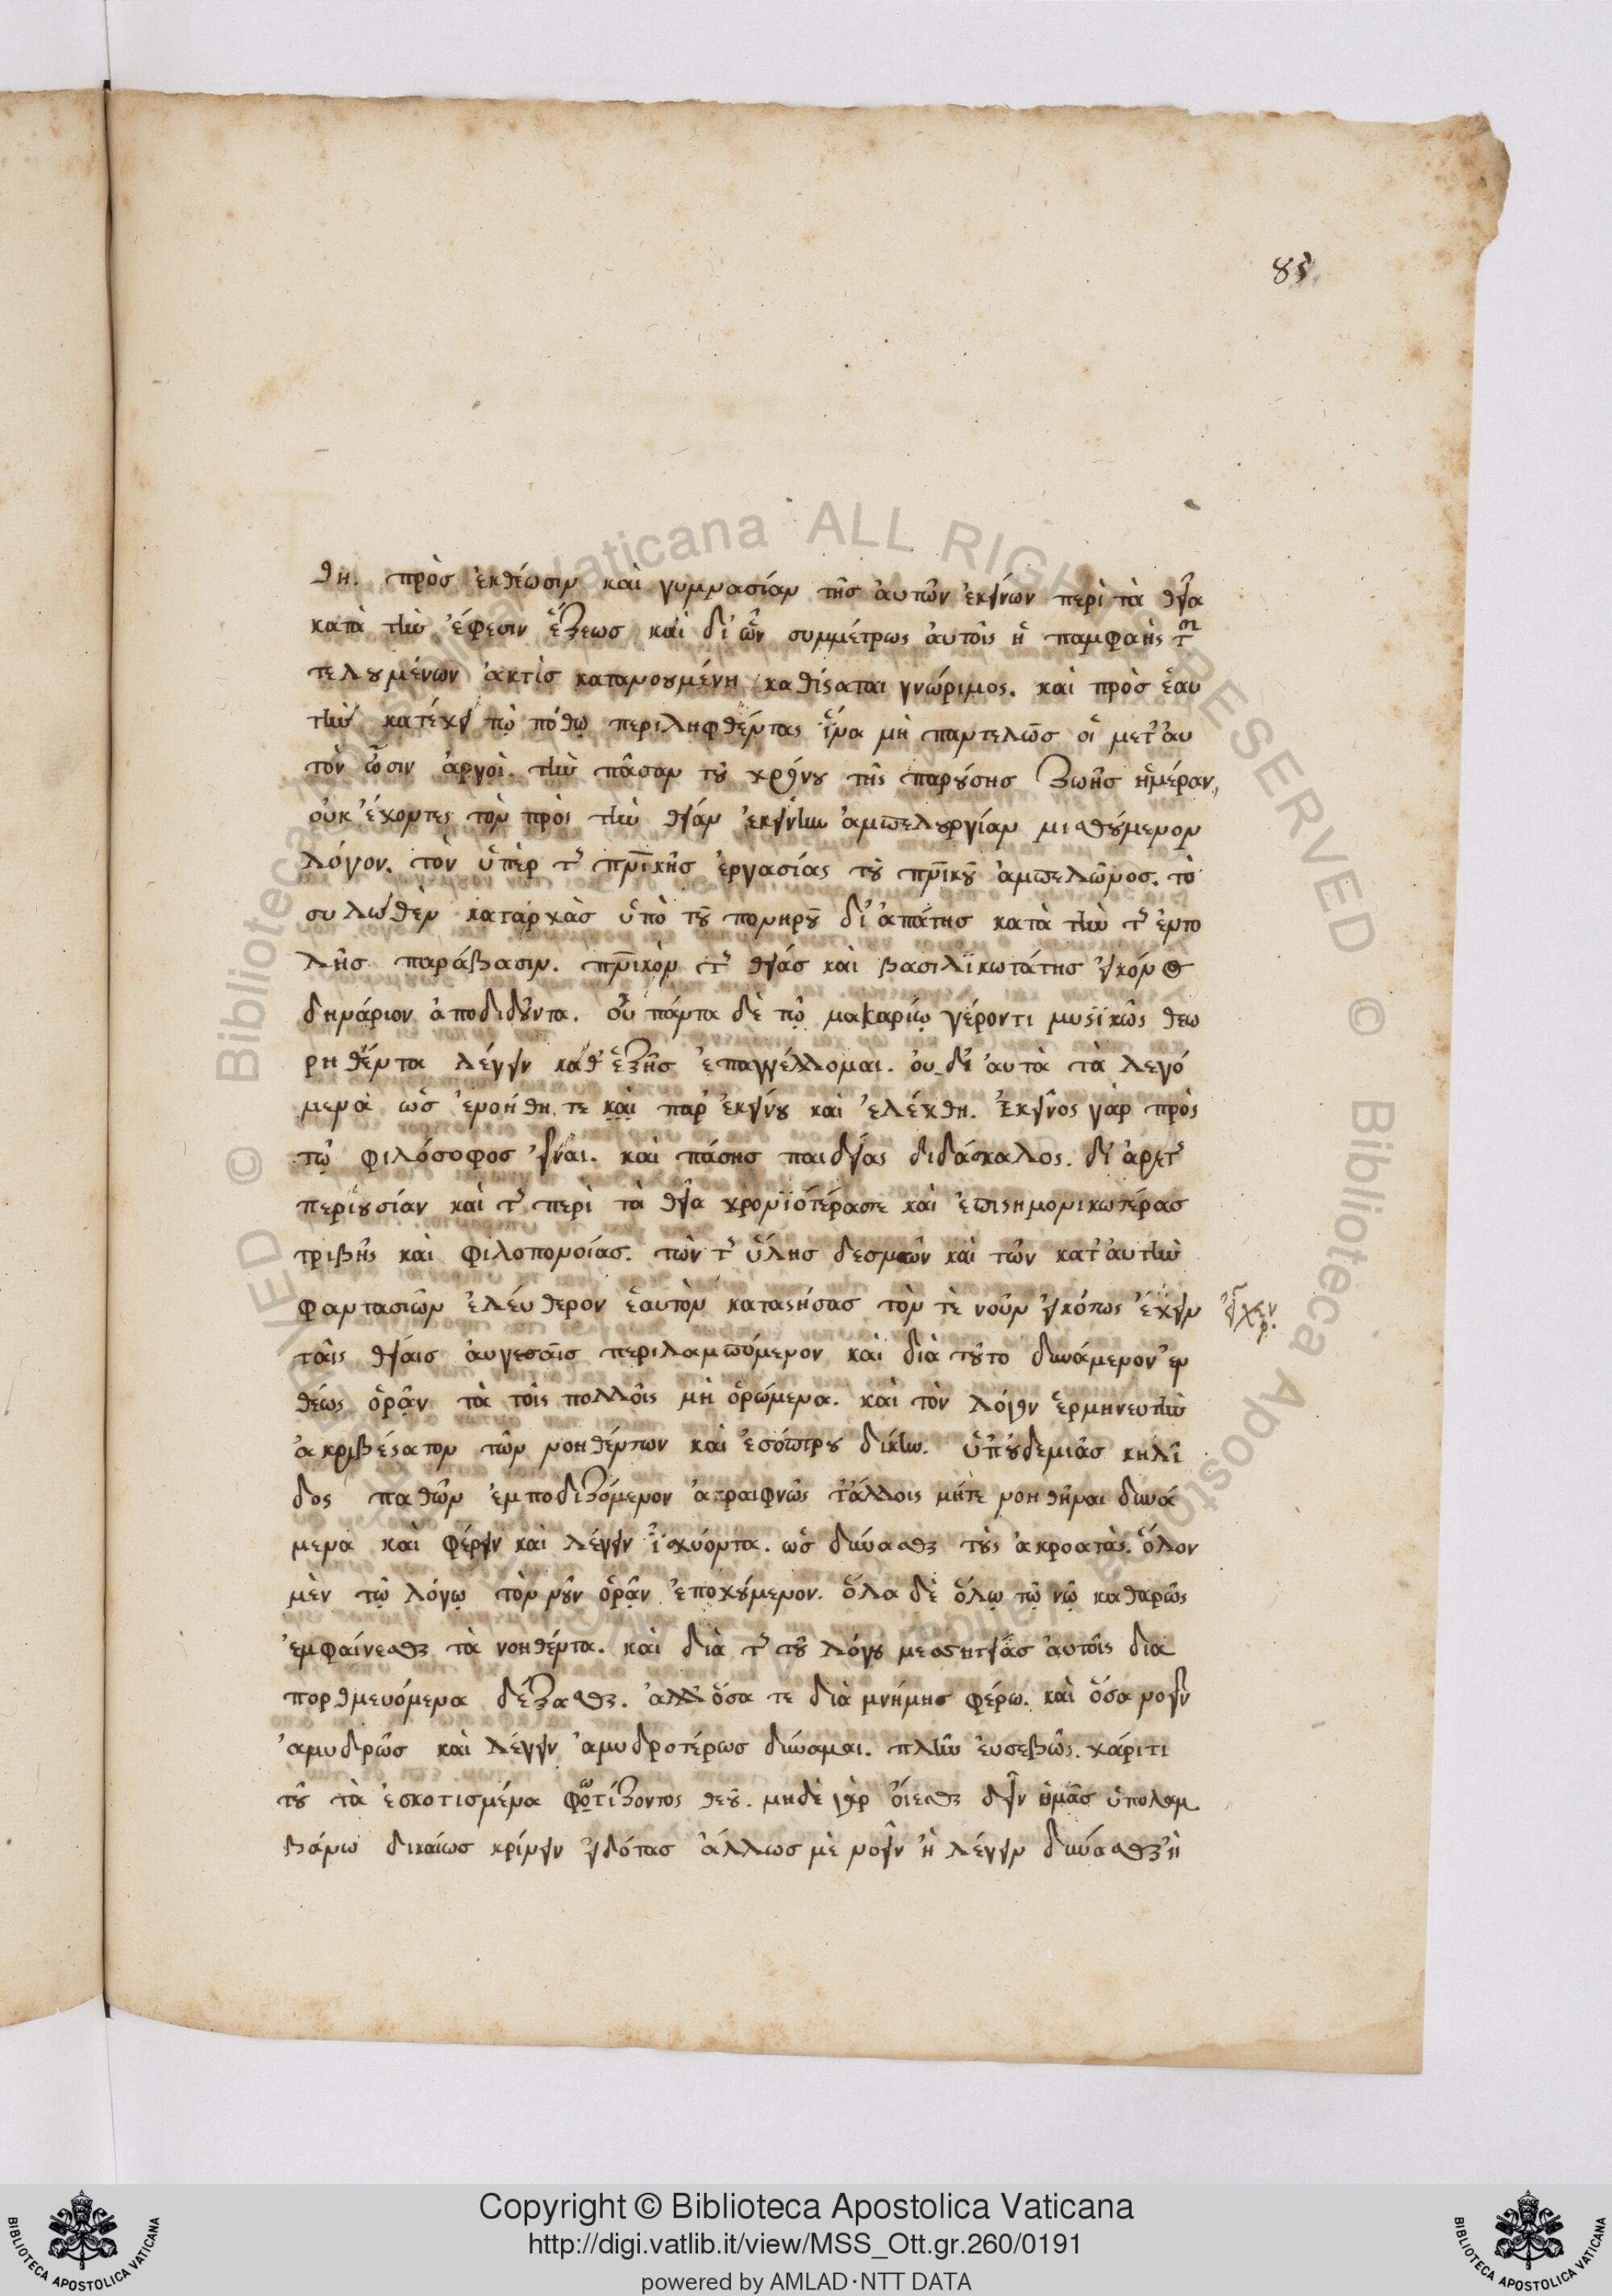 85
θη. πρὸς ἐκθέωσιν καὶ γυμνασίαν τῆς αὐτῶν ἐκείνων περὶ τὰ θεῖα
κατὰ τὴν ἔφεσιν ἕξεως καὶ δι' ὧν συμμέτρως αὐτοῖς ἡ παμφαὴς τῶν
τελουμένων ἀκτὶς κατανουμένη καθίσταται γνώριμος. καὶ πρὸς ἑαυ
τὴν κατέχει τῷ πόθῳ περιληφθέντας ἵνα μὴ παντελῶς οἱ μετ' αὐ
τὸν ὦσιν ἀργοὶ. τὴν πᾶσαν τοῦ χρόνου τῆς παρούσης ζωῆς ἡμέραν,
οὐκ ἔχοντες τὸν πρὸς τὴν θείαν ἐκείνην ἀμπελουργίαν μισθούμενον
λόγον. τὸν ὑπὲρ τῆς πνικῆς ἐργασίας τοῦ πνικοῦ ἀμπελῶνος. τὸ
συλωθὲν καταρχὰς ὑπὸ τοῦ πονηροῦ δι' ἀπάτης κατὰ τὴν τῆς ἐντο
λῆς παράβασιν. πνικὸν τῆς θείας καὶ βασιλϊκωτάτης εἰκόνος
δηνάριον ἀποδιδοῦντα. οὐ πάντα δὲ τῷ μακαρίῳ γέροντι μυστϊκῶς θεω
ρηθέντα λέγειν καθ' ἑξῆς ἐπαγγέλλομαι. οὐ δὲ αὐτὰ τὰ λεγό
μενα ὡς ἐνοήθη τε καὶ παρ' ἐκείνου καὶ ἐλέχθη. Ἐκεῖνος γὰρ πρὸς
τῷ φιλόσοφος εἶναι. καὶ πάσης παιδείας διδάσκαλος. δι' ἀρετῆς
περιουσίαν καὶ τῆς περὶ τὰ θεῖα χρονϊότέραστε καὶ ἐπιστημονικωτέρας
τριβῆς καὶ φιλοπονοίας. τῶν τῆς ὕλης δεσμῶν καὶ τῶν κατ' αὐτὴν
φαντασιῶν ἐλεύθερον ἑαυτὸν καταστήσας τὸν τὲ νοῦν εἰκότως ἔχειν
εἶχεν
ταῖς θείαις αὐγεσαῖς περιλαμπόμενον καὶ διὰ τοῦτο δυνάμενον εὐ
θέως ὁρᾷν τὰ τοῖς πολλοῖς μὴ ὁρώμενα. καὶ τὸν λόγον ἑρμηνευτὴν
ἀκριβέστατον τῶν νοηθέντων καὶ ἐσόπτρου δίκην. ὑπ' οὐδεμιᾶς κηλῖ
δος παθῶν ἐμποδιζόμενον ἀκραιφνῶς τ' ἄλλοις μήτε νοηθῆναι δυνά
μενα καὶ φέρειν καὶ λέγειν ἰσχύοντα. ὡς δύνασθαι τοὺς ἀκροατὰς. ὅλον
μὲν τῷ λόγῳ τὸν νοῦν ὁρᾷν ἐποχούμενον. ὅλα δὲ ὅλῳ τῷ νῷ καθαρῶς
ἐμφαίνεσθαι τὰ νοηθέντα. καὶ διὰ τῆς τοῦ λόγου μεσητείας αὐτοῖς δια
πορθμευόμενα δέξασθαι. ἀλλ' ὅσα τε διὰ μνήμης φέρω. καὶ ὅσα νοεῖν
ἀμυδρῶς καὶ λέγειν ἀμυδροτέρως δύναμαι. πλὴν εὐσεβῶς. χάριτι
τοῦ τὰ ἐσκοτισμένα φωτίζοντος θεοῦ. μηδὲ γὰρ οἴεσθαι δεῖν ὑμᾶς ὑπολαμ
βάνω δικαίως κρίνειν εἰδότας ἄλλως μὲ νοεῖν ἢ λέγειν δύνασθαι ἢ
Copyright © Biblioteca Apostolica Vaticana
http://digi.vatlib.it/view/MSS_Ott.gr.260/0191
powered by AMLAD·NTT DATA